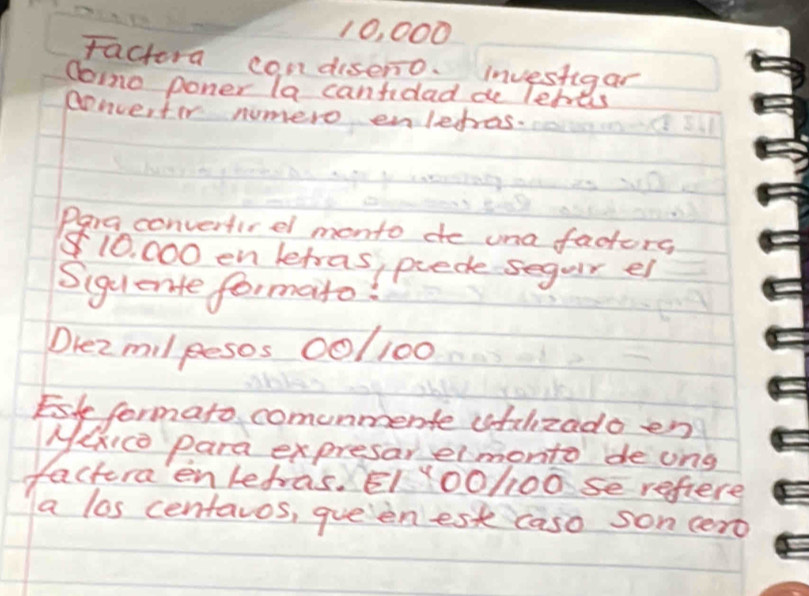 10,000
Factora con diseño. investigar
como poner la cantidad de letras
convertir numero en letras.
Para convertir el monto de una factora
$10.000 en letras, puede seguir el
Siguiente formato:
Diez mil pesos 00/100
Este formato comunmente utilizado en
México para expresar el monto de una
factura en letras. El "00/100 se refiere
a los centavos, que en este caso son cero